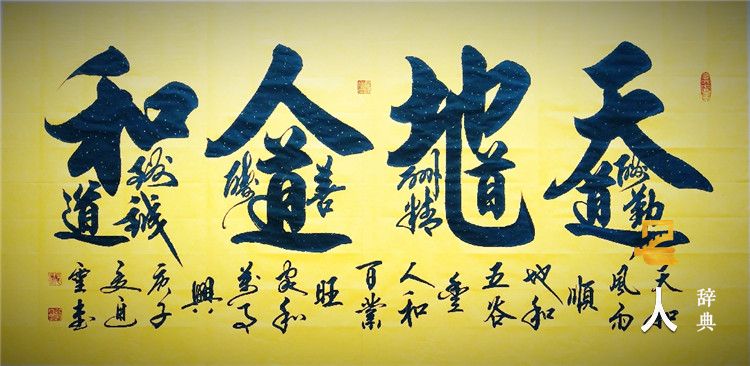 天道酬勤
地道酬精
人道酬善
和道酬誠
天和
風雨
順
地和
五谷
豐
人和
百業
旺
家和
萬事
興
庚子
人
辞典